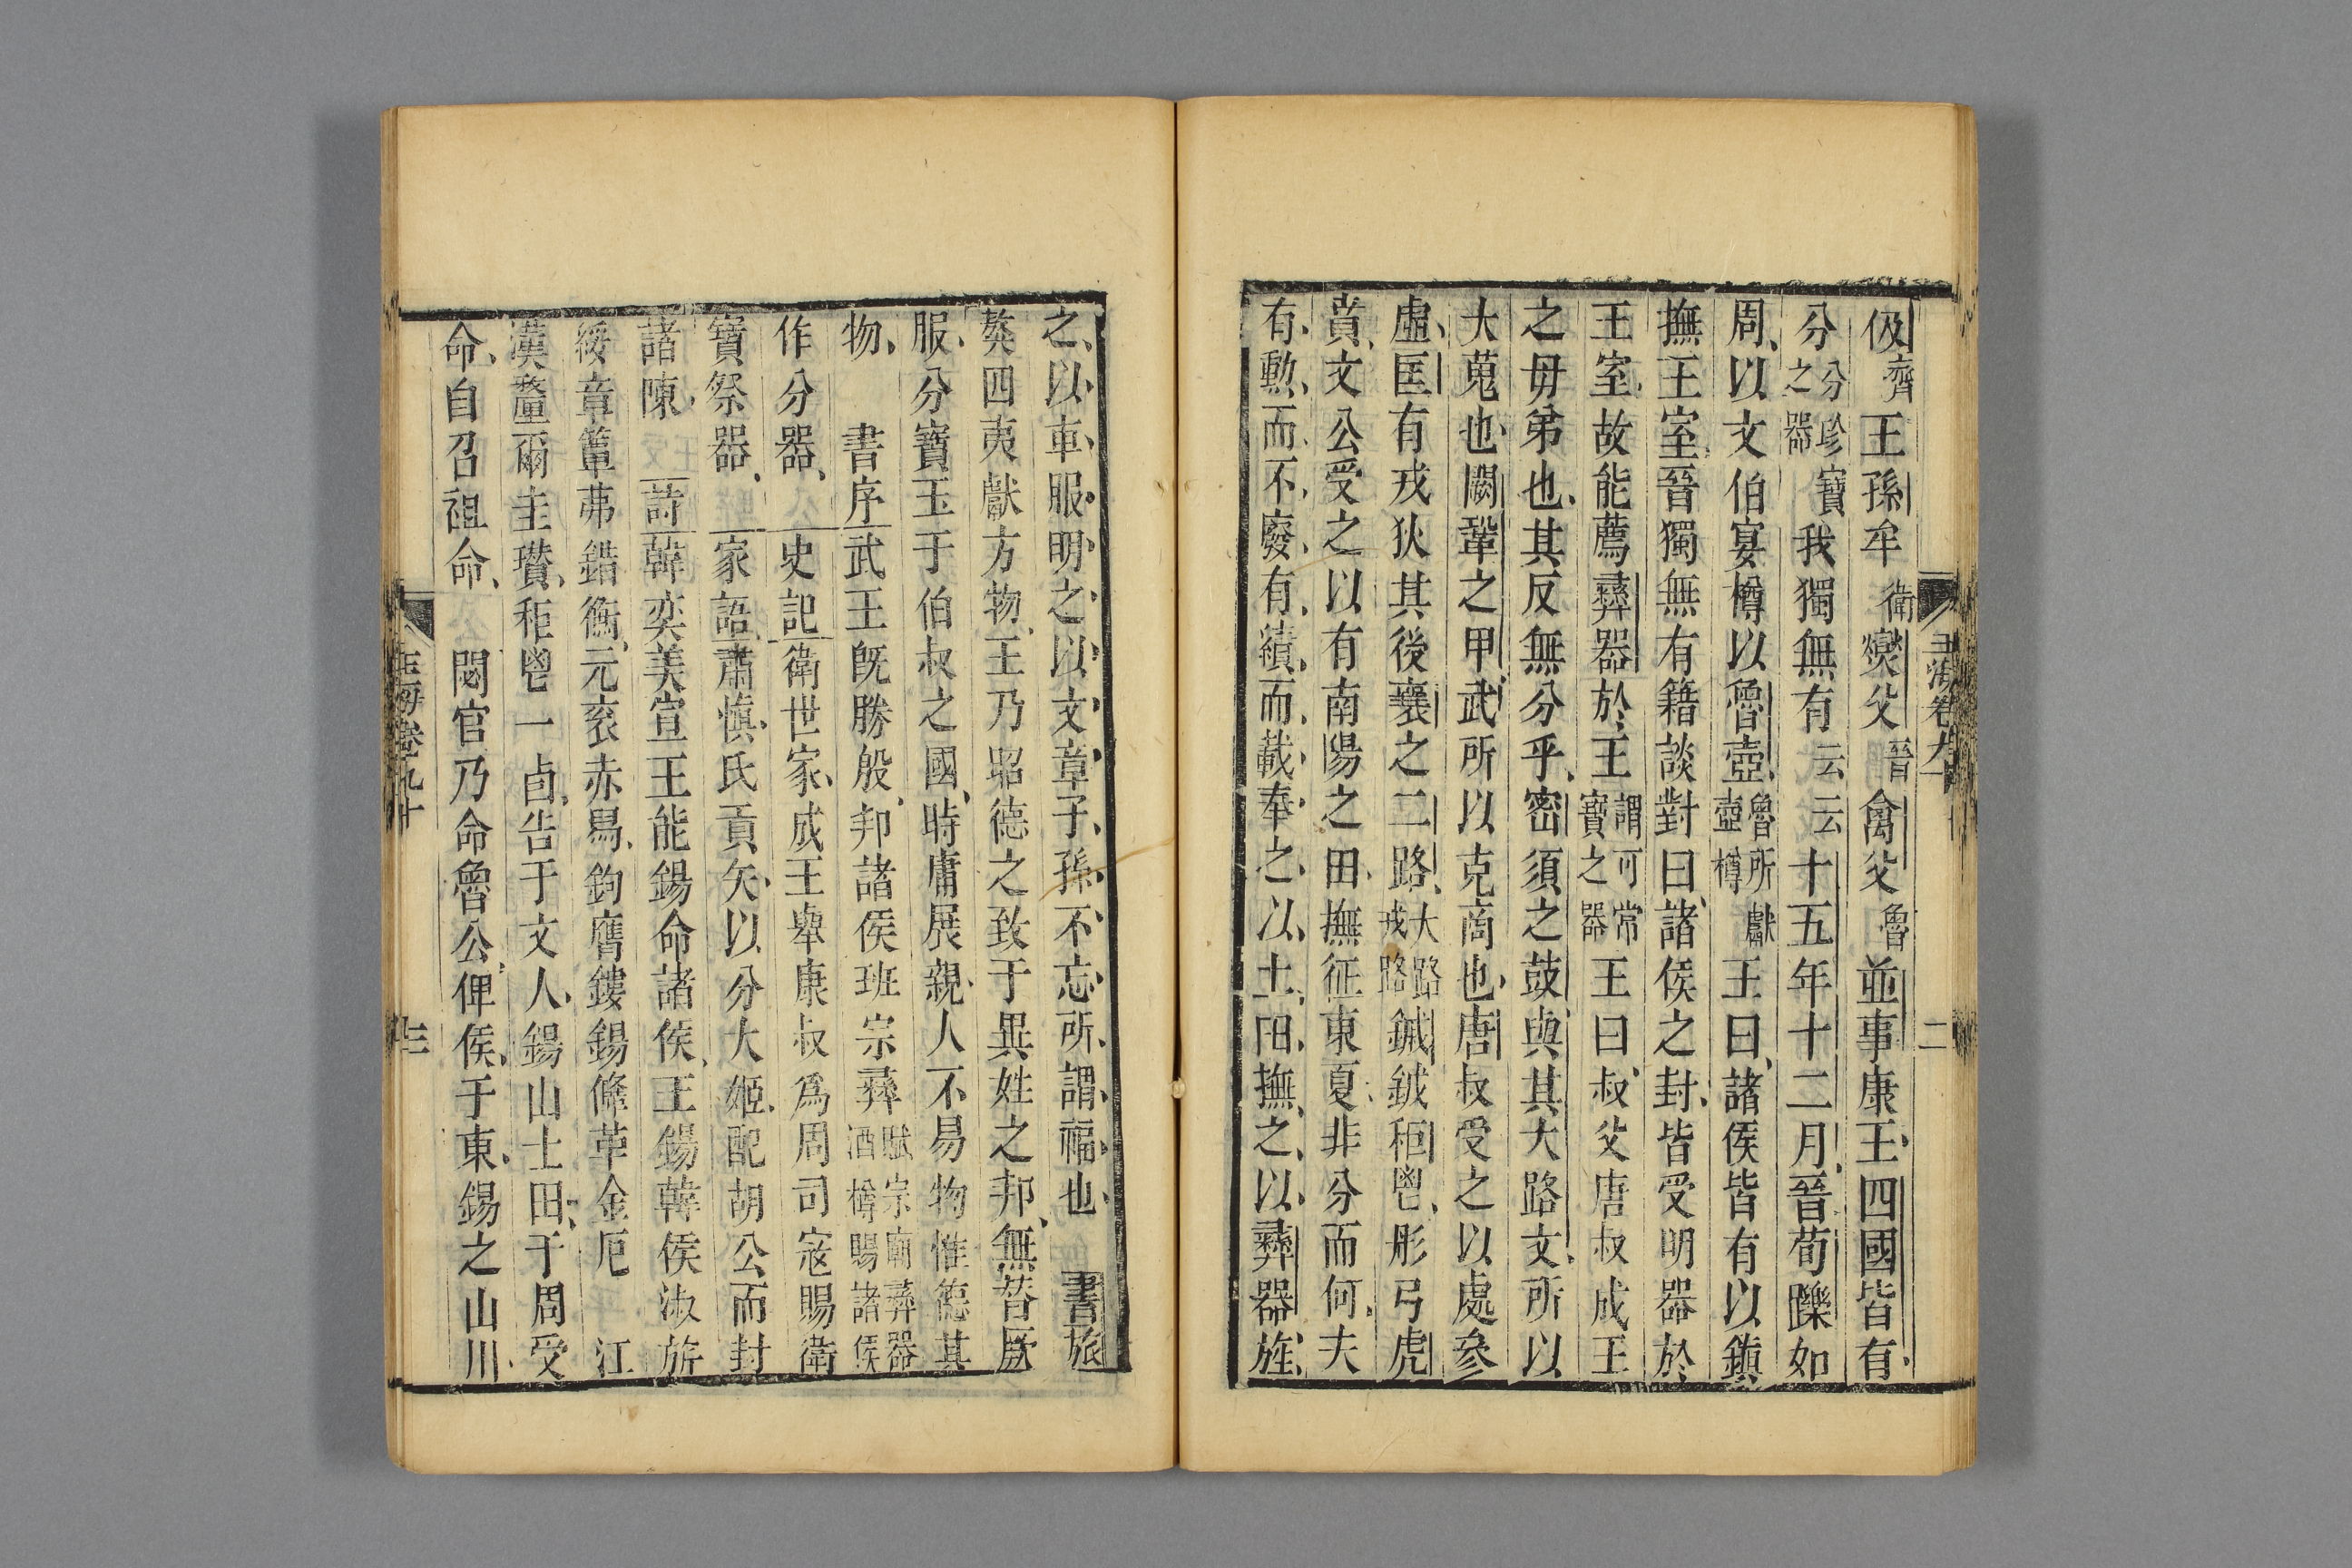 伋齊王孫牟衛爕父晉禽父魯並事康王四國皆有
分分珍寶之器我獨無有云云十五年十二月晉荀躒如
周以文伯宴樽以魯壺魯所獻壺樽王曰諸侯皆有以鎮
撫王室晉獨無有籍談對曰諸侯之封皆受明器於
王室故能薦彝器於王謂可常寶之器王曰叔父唐叔成王
之毋弟也其反無分乎密須之鼓與其大路文所以
大蒐也闕鞏之甲武所以克商也唐叔受之以處參
虛匡有戎狄其後襄之二路大路戎路鏚鉞秬鬯彤弓虎
賁文公受之以有南陽之田撫征東夏非分而何夫
有勲而不廢有績而載奉之以土田撫之以彝器旌
之以車服明之以文章子孫不忘所謂福也 書旅
獒四夷獻方物王乃昭德之致于異姓之邦無替厥
服分寶玉于伯叔之國時庸展親人不易物惟德其
物 書序武王旣勝殷邦諸侯班宗彝賦宗廟彝器酒樽賜諸侯
作分器 史記衛世家成王舉康叔爲周司寇賜衛
寶祭器 家語肅慎氏貢矢以分大姬配胡公而封
諸陳 詩韓奕美宣王能錫命諸侯王錫韓侯淑旂
綏章簟茀錯衡元衮赤舄鉤膺鏤錫鞗革金厄 江
漢釐爾圭瓚秬鬯一卣告于文人錫山土田于周受
命自召祖命 閟宮乃命魯公俾侯于東錫之山川
玉海卷九十
二
玉海卷九十
三